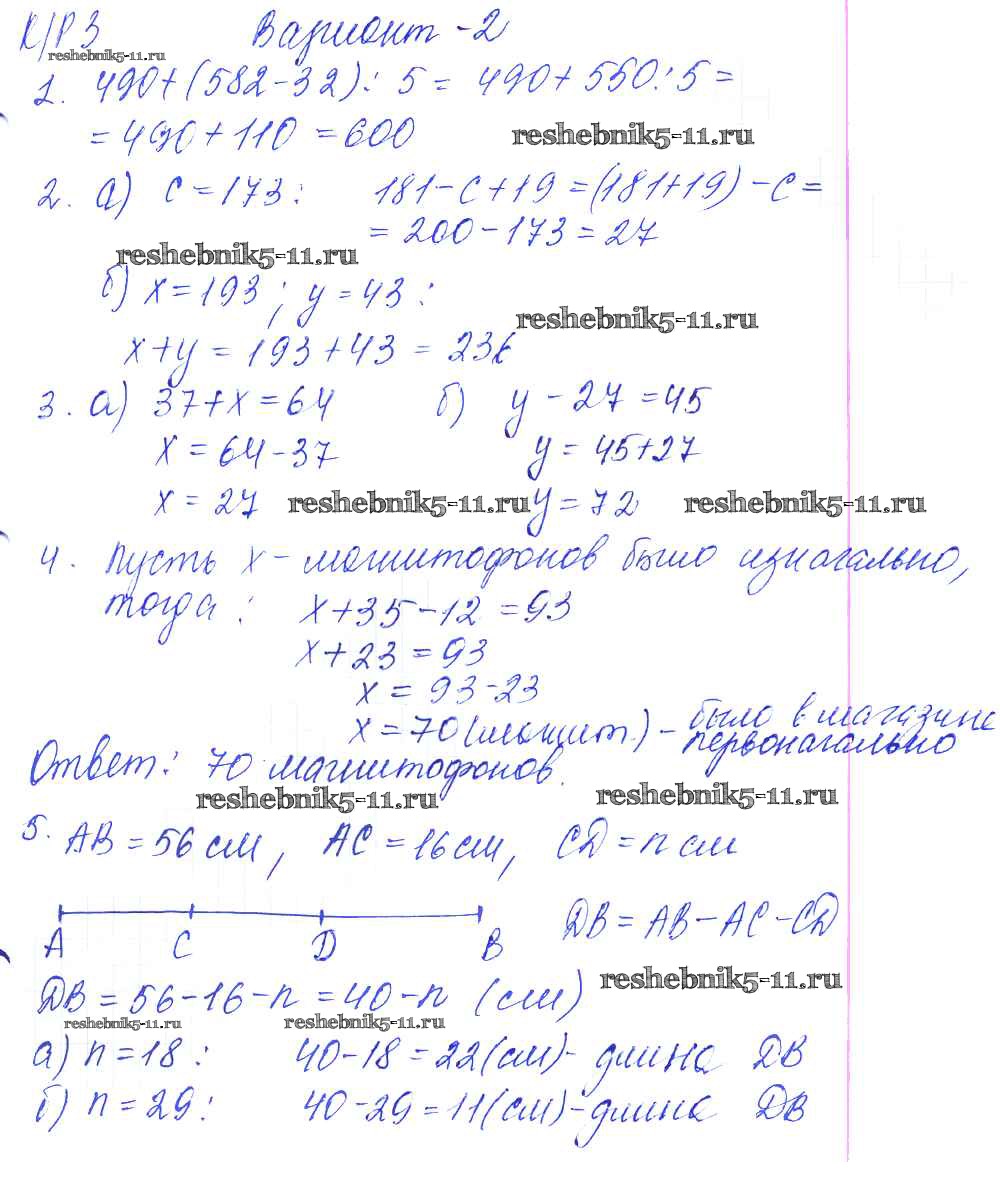 К/Р 3 Вариант - 2
reshebnik5-11.ru
1. 490+(582-32): 5 = 490+550:5 =
= 490+110 = 600 reshebnik5-11.ru
2. а) c = 173: 181-c+19 = (181+19)-c =
= 200-173 = 27
reshebnik5-11.ru
б) x = 193; y = 43:
reshebnik5-11.ru
x+y = 193+43 = 236
3. а) 37+x = 64 б) y - 27 = 45
x = 64-37 y = 45+27
x = 27 reshebnik5-11.ru y = 72 reshebnik5-11.ru
4. Пусть x - магнитофонов было изначально,
тогда: x+35-12 = 93
x+23 = 93
x = 93-23
x = 70 (магнит.) - было в магазине
первоначально
Ответ: 70 магнитофонов.
reshebnik5-11.ru reshebnik5-11.ru
5. AB = 56 см, AC = 16 см, CD = n см
DB = AB-AC-CD
A C D B
reshebnik5-11.ru
DB = 56-16-n = 40-n (см)
reshebnik5-11.ru reshebnik5-11.ru
а) n = 18: 40-18 = 22 (см) - длина DB
б) n = 29: 40-29 = 11 (см) - длина DB